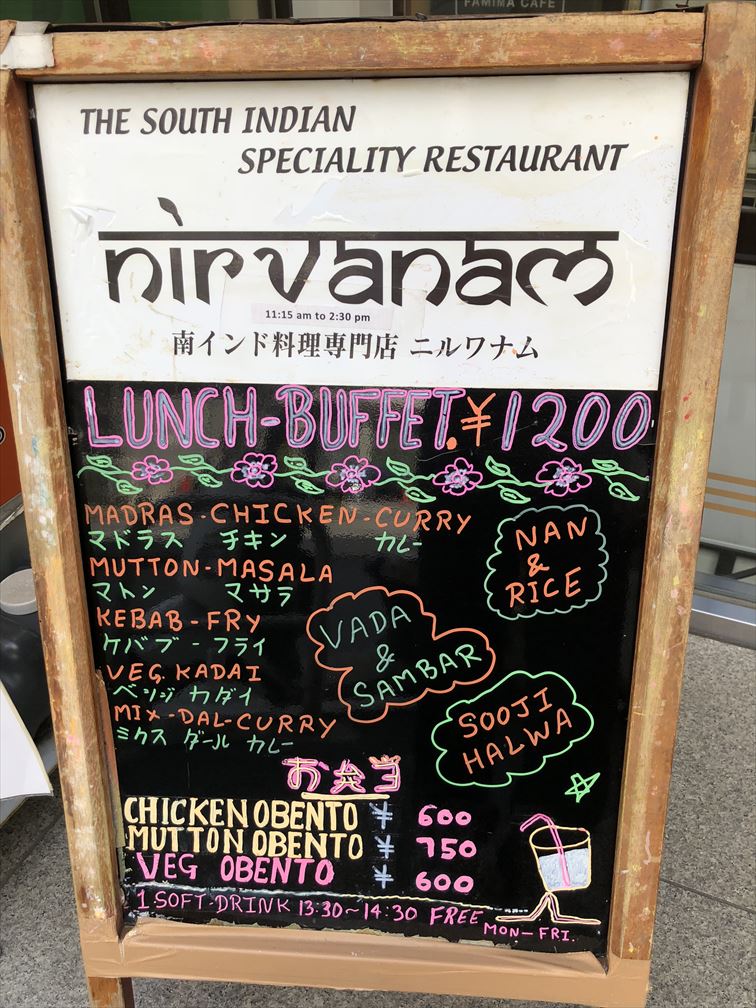 FAMIMA CAFE
THE SOUTH INDIAN
SPECIALITY RESTAURANT
nirvanam
11:15 am to 2:30 pm
南インド料理専門店 ニルワナム
LUNCH-BUFFET.¥1200
MADRAS-CHICKEN-CURRY
マドラス チキン カレー
MUTTON-MASALA
マトン マサラ
KEBAB-FRY
ケバブ-フライ
VEG. KADAI
ベジジ カダイ
MIX-DAL-CURRY
ミクス ダール カレー
NAN
&
RICE
VADA
&
SAMBAR
SOOJI
HALWA
お弁当
CHICKEN OBENTO ¥ 600
MUTTON OBENTO ¥ 750
VEG OBENTO ¥ 600
1 SOFT-DRINK 13:30~14:30 FREE
MON-FRI.